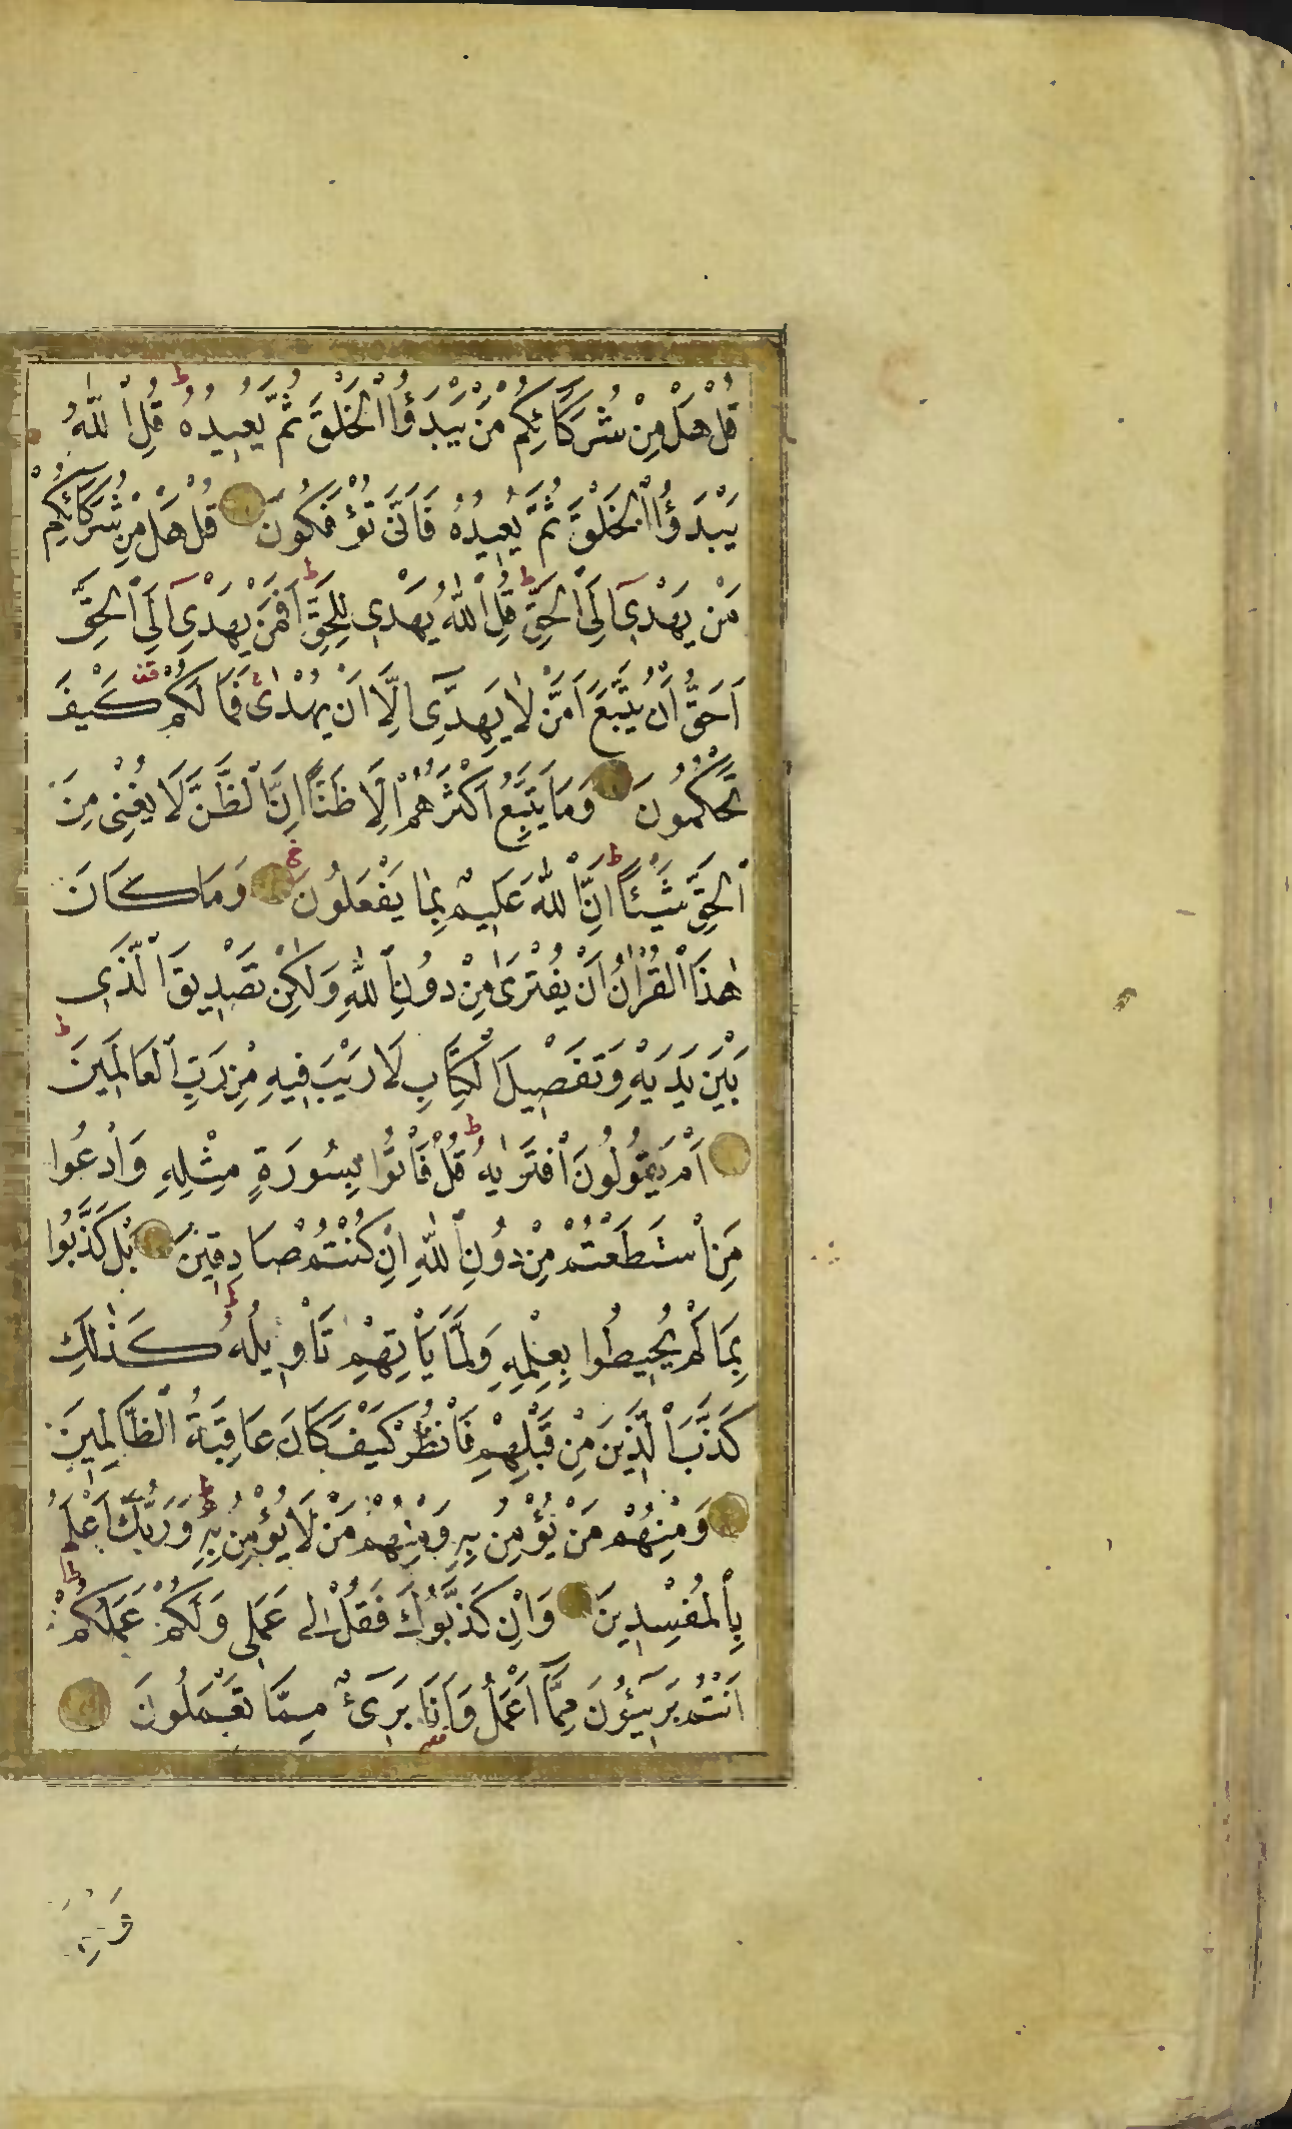 قُلْ هَلْ مِنْ شُرَكَائِكُمْ مَنْ يَبْدَؤُا الْخَلْقَ ثُمَّ يُعِيدُهُ ط قُلِ اللّٰهُ
يَبْدَؤُا الْخَلْقَ ثُمَّ يُعِيدُهُ فَاَنّٰى تُؤْفَكُونَ قُلْ هَلْ مِنْ شُرَكَائِكُمْ
مَنْ يَهْدِىٓ اِلَى الْحَقِّ ط قُلِ اللّٰهُ يَهْدِى لِلْحَقِّ ط اَفَمَنْ يَهْدِىٓ اِلَى الْحَقِّ
اَحَقُّ اَنْ يُتَّبَعَ اَمَّنْ لَا يَهِدِّىٓ اِلَّا اَنْ يُهْدٰى فَمَا لَكُمْ قف كَيْفَ
تَحْكُمُونَ وَمَا يَتَّبِعُ اَكْثَرُهُمْ اِلَّا ظَنًّا اِنَّ الظَّنَّ لَا يُغْنِى مِنَ
الْحَقِّ شَيْئًا ط اِنَّ اللّٰهَ عَلِيمٌ بِمَا يَفْعَلُونَ وَمَا كَانَ
هٰذَا الْقُرْاٰنُ اَنْ يُفْتَرٰى مِنْ دُونِ اللّٰهِ وَلٰكِنْ تَصْدِيقَ الَّذِى
بَيْنَ يَدَيْهِ وَتَفْصِيلَ الْكِتَابِ لَا رَيْبَ فِيهِ مِنْ رَبِّ الْعَالَمِينَ ط
اَمْ يَقُولُونَ افْتَرٰيهُ ط قُلْ فَأْتُوا بِسُورَةٍ مِثْلِهِ وَادْعُوا
مَنِ اسْتَطَعْتُمْ مِنْ دُونِ اللّٰهِ اِنْ كُنْتُمْ صَادِقِينَ بَلْ كَذَّبُوا
بِمَا لَمْ يُحِيطُوا بِعِلْمِهِ وَلَمَّا يَأْتِهِمْ تَأْوِيلُهُ ط كَذٰلِكَ
كَذَّبَ الَّذِينَ مِنْ قَبْلِهِمْ فَانْظُرْ كَيْفَ كَانَ عَاقِبَةُ الظَّالِمِينَ
وَمِنْهُمْ مَنْ يُؤْمِنُ بِهِ وَمِنْهُمْ مَنْ لَا يُؤْمِنُ بِهِ ط وَرَبُّكَ اَعْلَمُ
بِالْمُفْسِدِينَ وَاِنْ كَذَّبُوكَ فَقُلْ لِى عَمَلِى وَلَكُمْ عَمَلُكُمْ ط
اَنْتُمْ بَرِيٓئُونَ مِمَّا اَعْمَلُ وَاَنَا بَرِىءٌ مِمَّا تَعْمَلُونَ